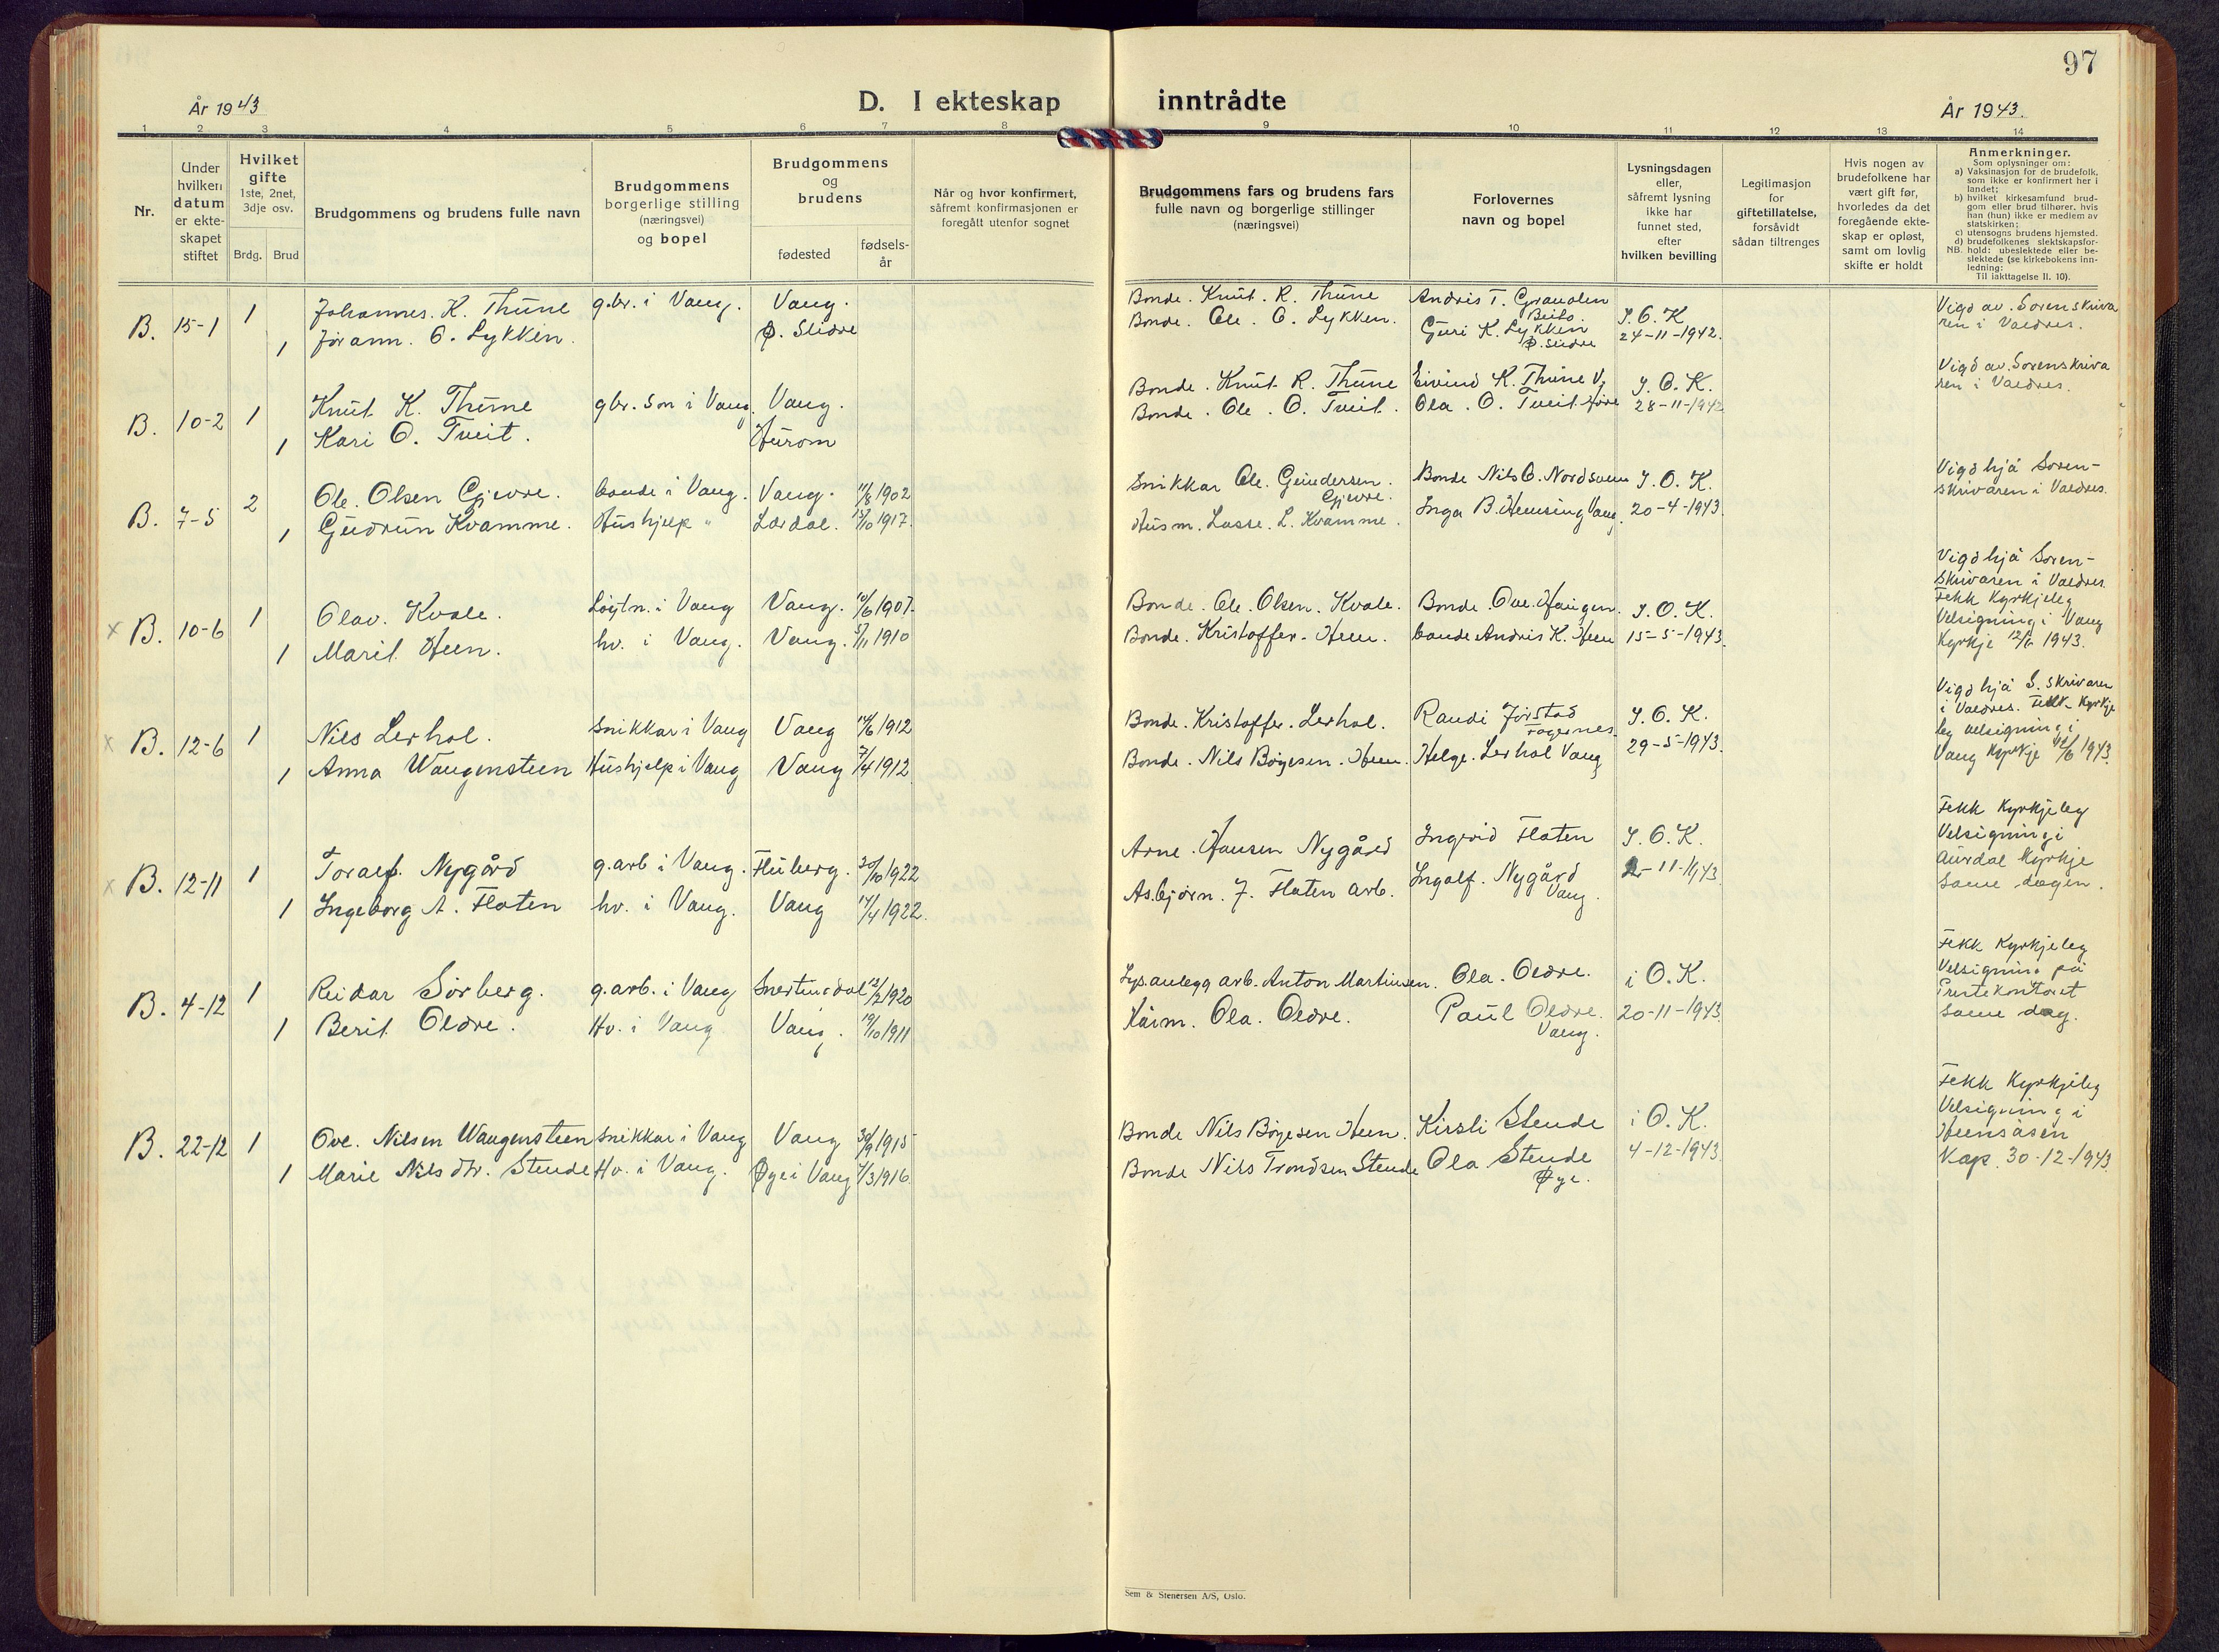 97
År 1943
D. I ekteskap inntrådte
År 1943.
1 2 3 4 5 6 7 8 9 10 11 12 13 14
Nr.
Under
hvilken
datum
er ekte-
skapet
stiftet
Hvilket
gifte
1ste, 2net,
3dje osv.
Brdg. Brud
Brudgommens og brudens fulle navn
Brudgommens
borgerlige stilling
(næringsvei)
og bopel
Brudgommens
og
brudens
fødested
fødsels-
år
Når og hvor konfirmert,
såfremt konfirmasjonen er
foregått utenfor sognet
Brudgommens fars og brudens fars
fulle navn og borgerlige stillinger
(næringsvei)
Forlovernes
navn og bopel
Lysningsdagen
eller,
såfremt lysning
ikke har
funnet sted,
efter
hvilken bevilling
Legitimasjon
for
giftetillatelse,
forsåvidt
sådan tiltrenges
Hvis nogen av
brudefolkene har
vært gift før,
hvorledes da det
foregående ekte-
skap er opløst,
samt om lovlig
skifte er holdt
Anmerkninger.
Som oplysninger om:
a) Vaksinasjon for de brudefolk,
som ikke er konfirmert her i
landet;
b) hvilket kirkesamfund brud-
gom eller brud tilhører, hvis
han (hun) ikke er medlem av
statskirken;
c) utensogns brudens hjemsted.
d) brudefolkenes slektskapsfor-
NB. hold: ubeslektede eller be-
slektede (se kirkebokens inn-
ledning:
Til iakttagelse II. 10).
B. 15-1 1 Johannes. K. Thune g.br. i Vang. Vang. Bonde. Knut. R. Thune Andris T. Grandlen Beito. J.O.K Vigd av. Sorenskriva
1 Jørann. O. Lykken. Ø. Slidre Bonde. Ole. O. Lykken. Guri K. Lykken Ø. Slidre 24-11-1942. ren i Valdres.
B. 10-2 1 Knut K. Thune gbr. son i Vang. Vang. Bonde. Knut R. Thune Eivind K. Thune V. J.O.K. Vigd av. Sorenskriva
1 Kari O. Tveit. Hurom Bonde. Ole. O. Tveit. Ola. O. Tveit. Høre 28-11-1942 ren i Valdres.
B. 7-5 2 Ole. Olsen Gjevre. bonde i Vang. Vang. 11/8 1902 Snikkar Ole. Gundersen. Gjevre. Bonde Nils O. Nordsveen J.O.K. Vigd hjå Soren-
1 Gudrun Kvamme. Hushjelp " Lærdal. 15/10 1917. Husm. Lasse. L. Kvamme. Inga B. Hemsing Vang. 20-4-1943. skrivaren i Valdres.
x B. 10-6 1 Olav. Kvale. Løytn. i Vang Vang. 10/6 1907. Bonde. Ole. Olsen. Kvale. Bonde. Ove. Haugen. J.O.K.
1 Marit Heen. hv. i Vang. Vang. 5/11 1910 Bonde. Kristoffer. Heen. bonde Andris K. Heen 15-5-1943.
Vigd hjå Soren-
skrivaren i Valdres.
Fekk Kyrkjeleg
Velsigning i Vang
Kyrkje 12/6 1943.
x B. 12-6 1 Nils Lerhol. Snikkar i Vang Vang 14/6 1912 Bonde. Kristoffer. Lerhol. Randi Jørstad Fagernes. J.O.K.
1 Anna Wangensteen Hushjelp i Vang Vang 7/4 1912 Bonde. Nils Børgesen. Heen. Helge. Lerhol Vang 29-5-1943.
Vigd hjå S. skrivaren
i Valdres. Fekk Kyrkje
leg velsigning i
Vang Kyrkje 12/6 1943.
x B. 12-11 1 Toralf. Nygård g.arb i Vang. Fluberg. 30/10 1922 Arne. Hansen Nygård Ingrid Floten J.O.K.
1 Ingeborg A. Floten hv. i Vang. Vang 14/4 1922. Asbjørn. J. Floten arb. Ingolf. Nygård Vang. 2-11-1943.
Fekk Kyrkjeleg
Velsigning i
Aurdal Kyrkje
same dagen.
B. 4-12 1 Reidar Sørberg. g.arb. i Vang Snertingdal 12/2 1920 Lys.anlegg arb. Anton Martinsen. Ola. Oldre. i O.K.
1 Berit Oldre. Hv. i Vang Vang. 19/10 1911 Kårm. Ola. Oldre. Paul Oldre. Vang. 20-11-1943.
Fekk Kyrkjeleg
Velsigning på
Prestekontoret
same dag.
B. 22-12 1 Ove. Nilsen Wangensteen Snikkar i Vang Vang 30/9 1915 Bonde Nils Børgesen Heen. Kirsti Stende i O.K.
1 Marie Nilsdtr. Stende Hv. i Vang. Øye i Vang 1/3 1916. Bonde Nils Trondsen Stende Ola Stende Øye. 4-12-1943.
Fekk Kyrkjeleg
Velsigning i
Heensåsen
Kap. 30-12-1943.
Sem & Stenersen A/S, Oslo.